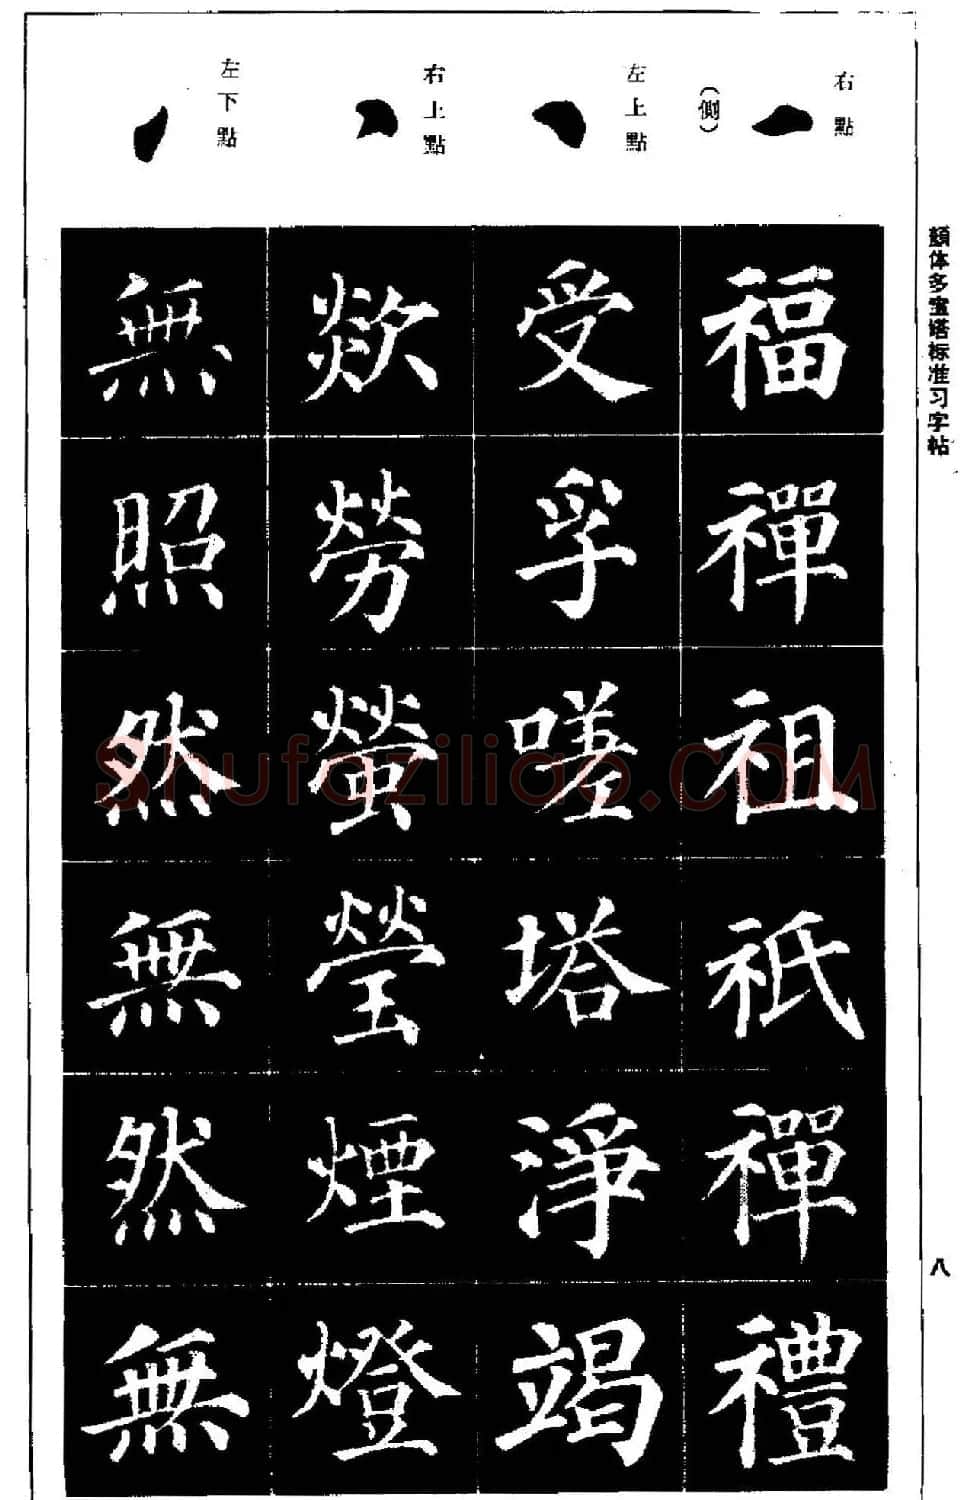 顏体多宝塔标准习字帖
八
右點
(側)
左上點
右上點
左下點
福禪祖祇禪禮
受孚嗟塔淨竭
歘勞螢瑩煙燈
無照然無然無
Shufaziliao.COM